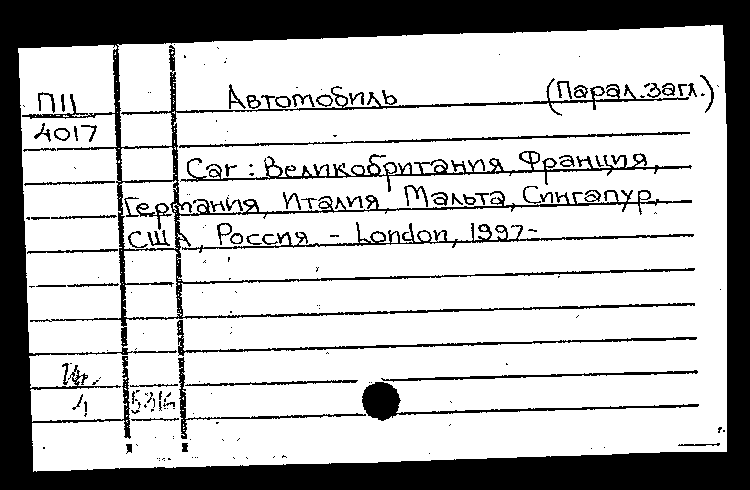 П11 Автомобиль (Парал.загл.)
4017
Car : Великобритания, Франция,
Германия, Италия, Мальта, Сингапур,
США, Россия. - London, 1997-
5316